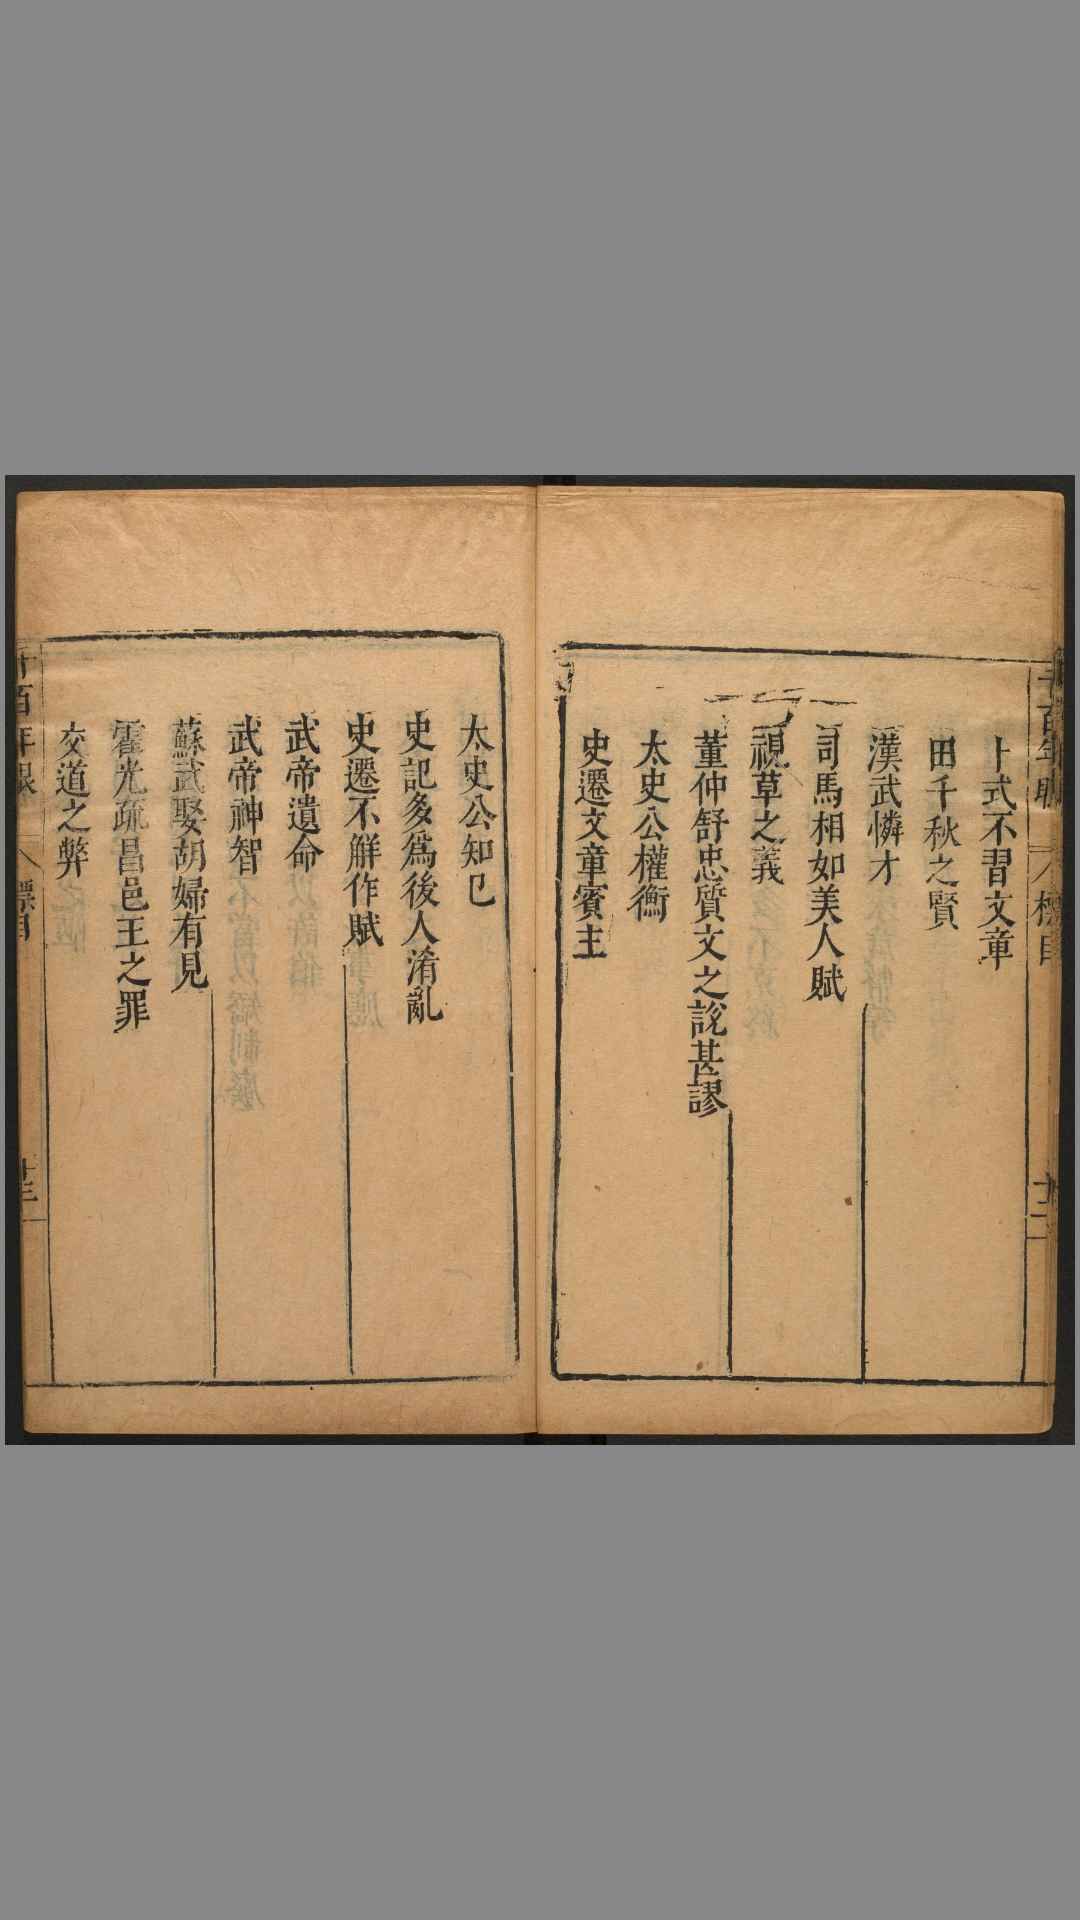 卜式不習文章
田千秋之賢
漢武憐才
司馬相如美人賦
視草之義
董仲舒忠質文之說甚謬
太史公權衡
史遷文章賓主
太史公知己
史記多爲後人淆亂
史遷不觧作賦
武帝遺命
武帝神智
蘇武娶胡婦有見
霍光疏昌邑王之罪
交道之弊